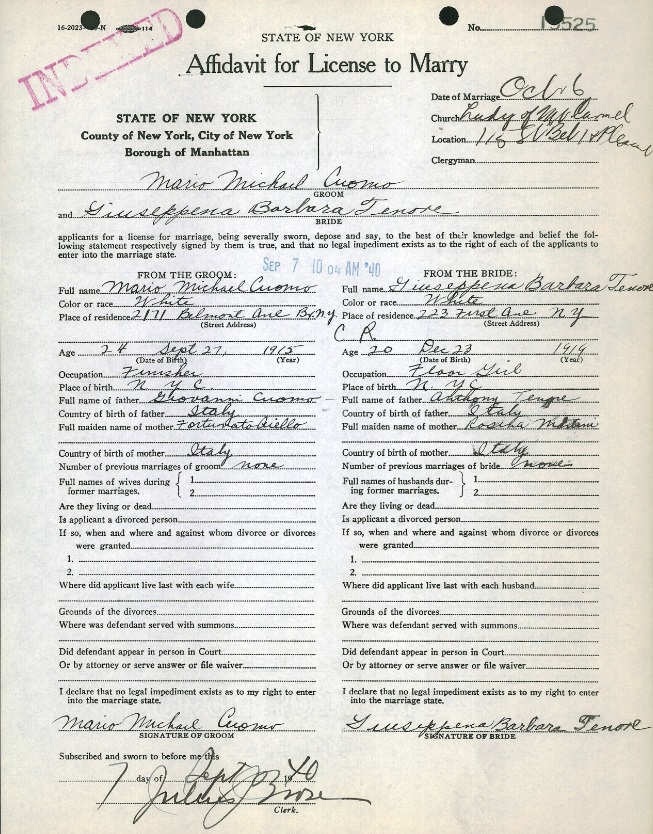 16-2023- -N 114
No. 19525
INDEXED
STATE OF NEW YORK
Affidavit for License to Marry
Date of Marriage Oct 6
Church Lady of Mt Carmel
Location 115
Clergyman
STATE OF NEW YORK
County of New York, City of New York
Borough of Manhattan
Mario Michael Cuomo
GROOM
and Giuseppena Barbara Tenore
BRIDE
applicants for a license for marriage, being severally sworn, depose and say, to the best of their knowledge and belief the fol-
lowing statement respectively signed by them is true, and that no legal impediment exists as to the right of each of the applicants to
enter into the marriage state.
SEP 7 10 04 AM '40
FROM THE GROOM:
Full name Mario Michael Cuomo
Color or race White
Place of residence 2171 Belmont Ave Bx N.Y.
(Street Address)
Age 24 Sept 27, 1915
(Date of Birth) (Year)
Occupation Finisher
Place of birth N Y C
Full name of father Giovanni Cuomo
Country of birth of father Italy
Full maiden name of mother Fortunato Aiello
Country of birth of mother Italy
Number of previous marriages of groom none
Full names of wives during
former marriages.
1
2
Are they living or dead
Is applicant a divorced person
If so, when and where and against whom divorce or divorces
were granted
1.
2.
Where did applicant live last with each wife
Grounds of the divorces
Where was defendant served with summons
Did defendant appear in person in Court
Or by attorney or serve answer or file waiver
I declare that no legal impediment exists as to my right to enter
into the marriage state.
Mario Michael Cuomo
SIGNATURE OF GROOM
FROM THE BRIDE:
Full name Giuseppena Barbara Tenore
Color or race White
Place of residence 223 First Ave N Y
(Street Address)
C R
Age 20 Dec 23 1919
(Date of Birth) (Year)
Occupation Floor Girl
Place of birth N. Y C
Full name of father Anthony Tenore
Country of birth of father Italy
Full maiden name of mother Rosina
Country of birth of mother Italy
Number of previous marriages of bride none
Full names of husbands dur-
ing former marriages.
1
2
Are they living or dead
Is applicant a divorced person
If so, when and where and against whom divorce or divorces
were granted
1.
2.
Where did applicant live last with each husband
Grounds of the divorces
Where was defendant served with summons
Did defendant appear in person in Court
Or by attorney or serve answer or file waiver
I declare that no legal impediment exists as to my right to enter
into the marriage state.
Giuseppena Barbara Tenore
SIGNATURE OF BRIDE
Subscribed and sworn to before me this
7 day of Sept 1940
Julius
Clerk.